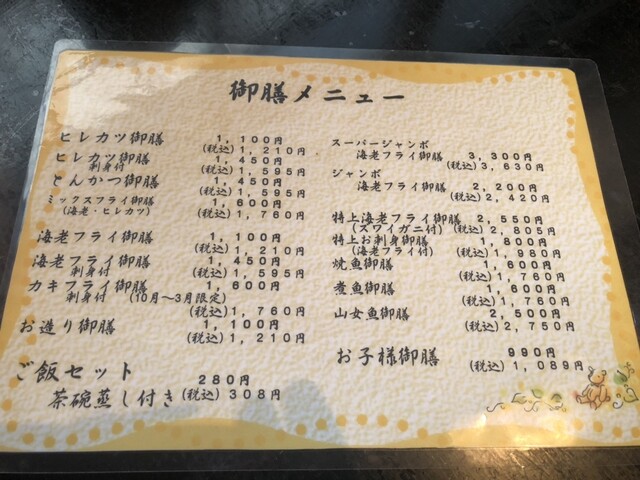 御膳メニュー
ヒレカツ御膳 1,100円
(税込)1,210円
ヒレカツ御膳 1,450円
刺身付 (税込)1,595円
とんかつ御膳 1,450円
(税込)1,595円
ミックスフライ御膳 1,600円
(海老・ヒレカツ) (税込)1,760円
海老フライ御膳 1,100円
(税込)1,210円
海老フライ御膳 1,450円
刺身付 (税込)1,595円
カキフライ御膳 1,600円
刺身付 (10月〜3月限定)
(税込)1,760円
お造り御膳 1,100円
(税込)1,210円
ご飯セット 280円
茶碗蒸し付き (税込)308円
スーパージャンボ
海老フライ御膳 3,300円
(税込)3,630円
ジャンボ
海老フライ御膳 2,200円
(税込)2,420円
特上海老フライ御膳 2,550円
(ズワイガニ付) (税込)2,805円
特上お刺身御膳 1,800円
(海老フライ付) (税込)1,980円
焼魚御膳 1,600円
(税込)1,760円
煮魚御膳 1,600円
(税込)1,760円
山女魚御膳 2,500円
(税込)2,750円
お子様御膳 990円
(税込)1,089円